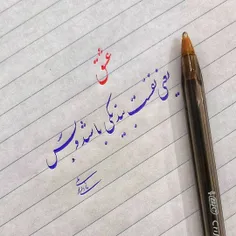 عشق
یعنی نفست بند یکی باشد و بس